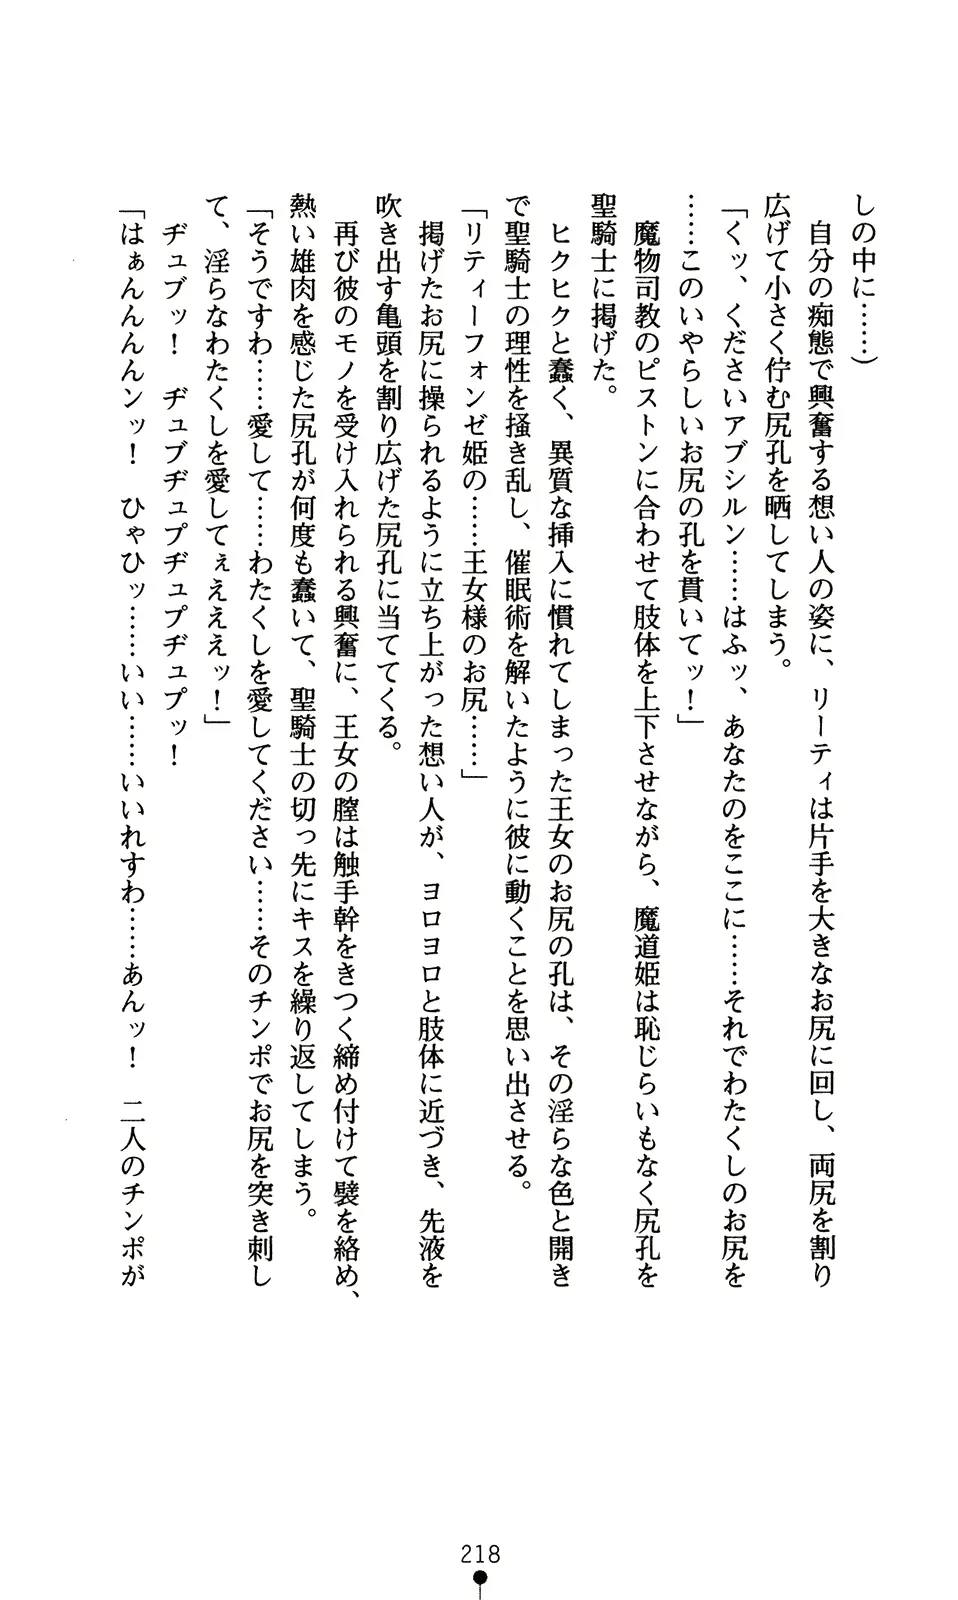 しの中に……）
　自分の痴態で興奮する想い人の姿に、リーティは片手を大きなお尻に回し、両尻を割り
広げて小さく佇む尻孔を晒してしまう。
「くッ、くださいアブシルン……はふッ、あなたのをここに……それでわたくしのお尻を
……このいやらしいお尻の孔を貫いてッ！」
　魔物司教のピストンに合わせて肢体を上下させながら、魔道姫は恥じらいもなく尻孔を
聖騎士に掲げた。
　ヒクヒクと蠢く、異質な挿入に慣れてしまった王女のお尻の孔は、その淫らな色と開き
で聖騎士の理性を掻き乱し、催眠術を解いたように彼に動くことを思い出させる。
「リティーフォンゼ姫の……王女様のお尻……」
　掲げたお尻に操られるように立ち上がった想い人が、ヨロヨロと肢体に近づき、先液を
吹き出す亀頭を割り広げた尻孔に当ててくる。
　再び彼のモノを受け入れられる興奮に、王女の膣は触手幹をきつく締め付けて襞を絡め、
熱い雄肉を感じた尻孔が何度も蠢いて、聖騎士の切っ先にキスを繰り返してしまう。
「そうですわ……愛して……わたくしを愛してください……そのチンポでお尻を突き刺し
て、淫らなわたくしを愛してぇえええッ！」
　ヂュブッ！　ヂュブヂュプヂュプヂュプッ！
「はぁんんんんンッ！　ひゃひッ……いい……いいれすわ……あんッ！　二人のチンポが
218